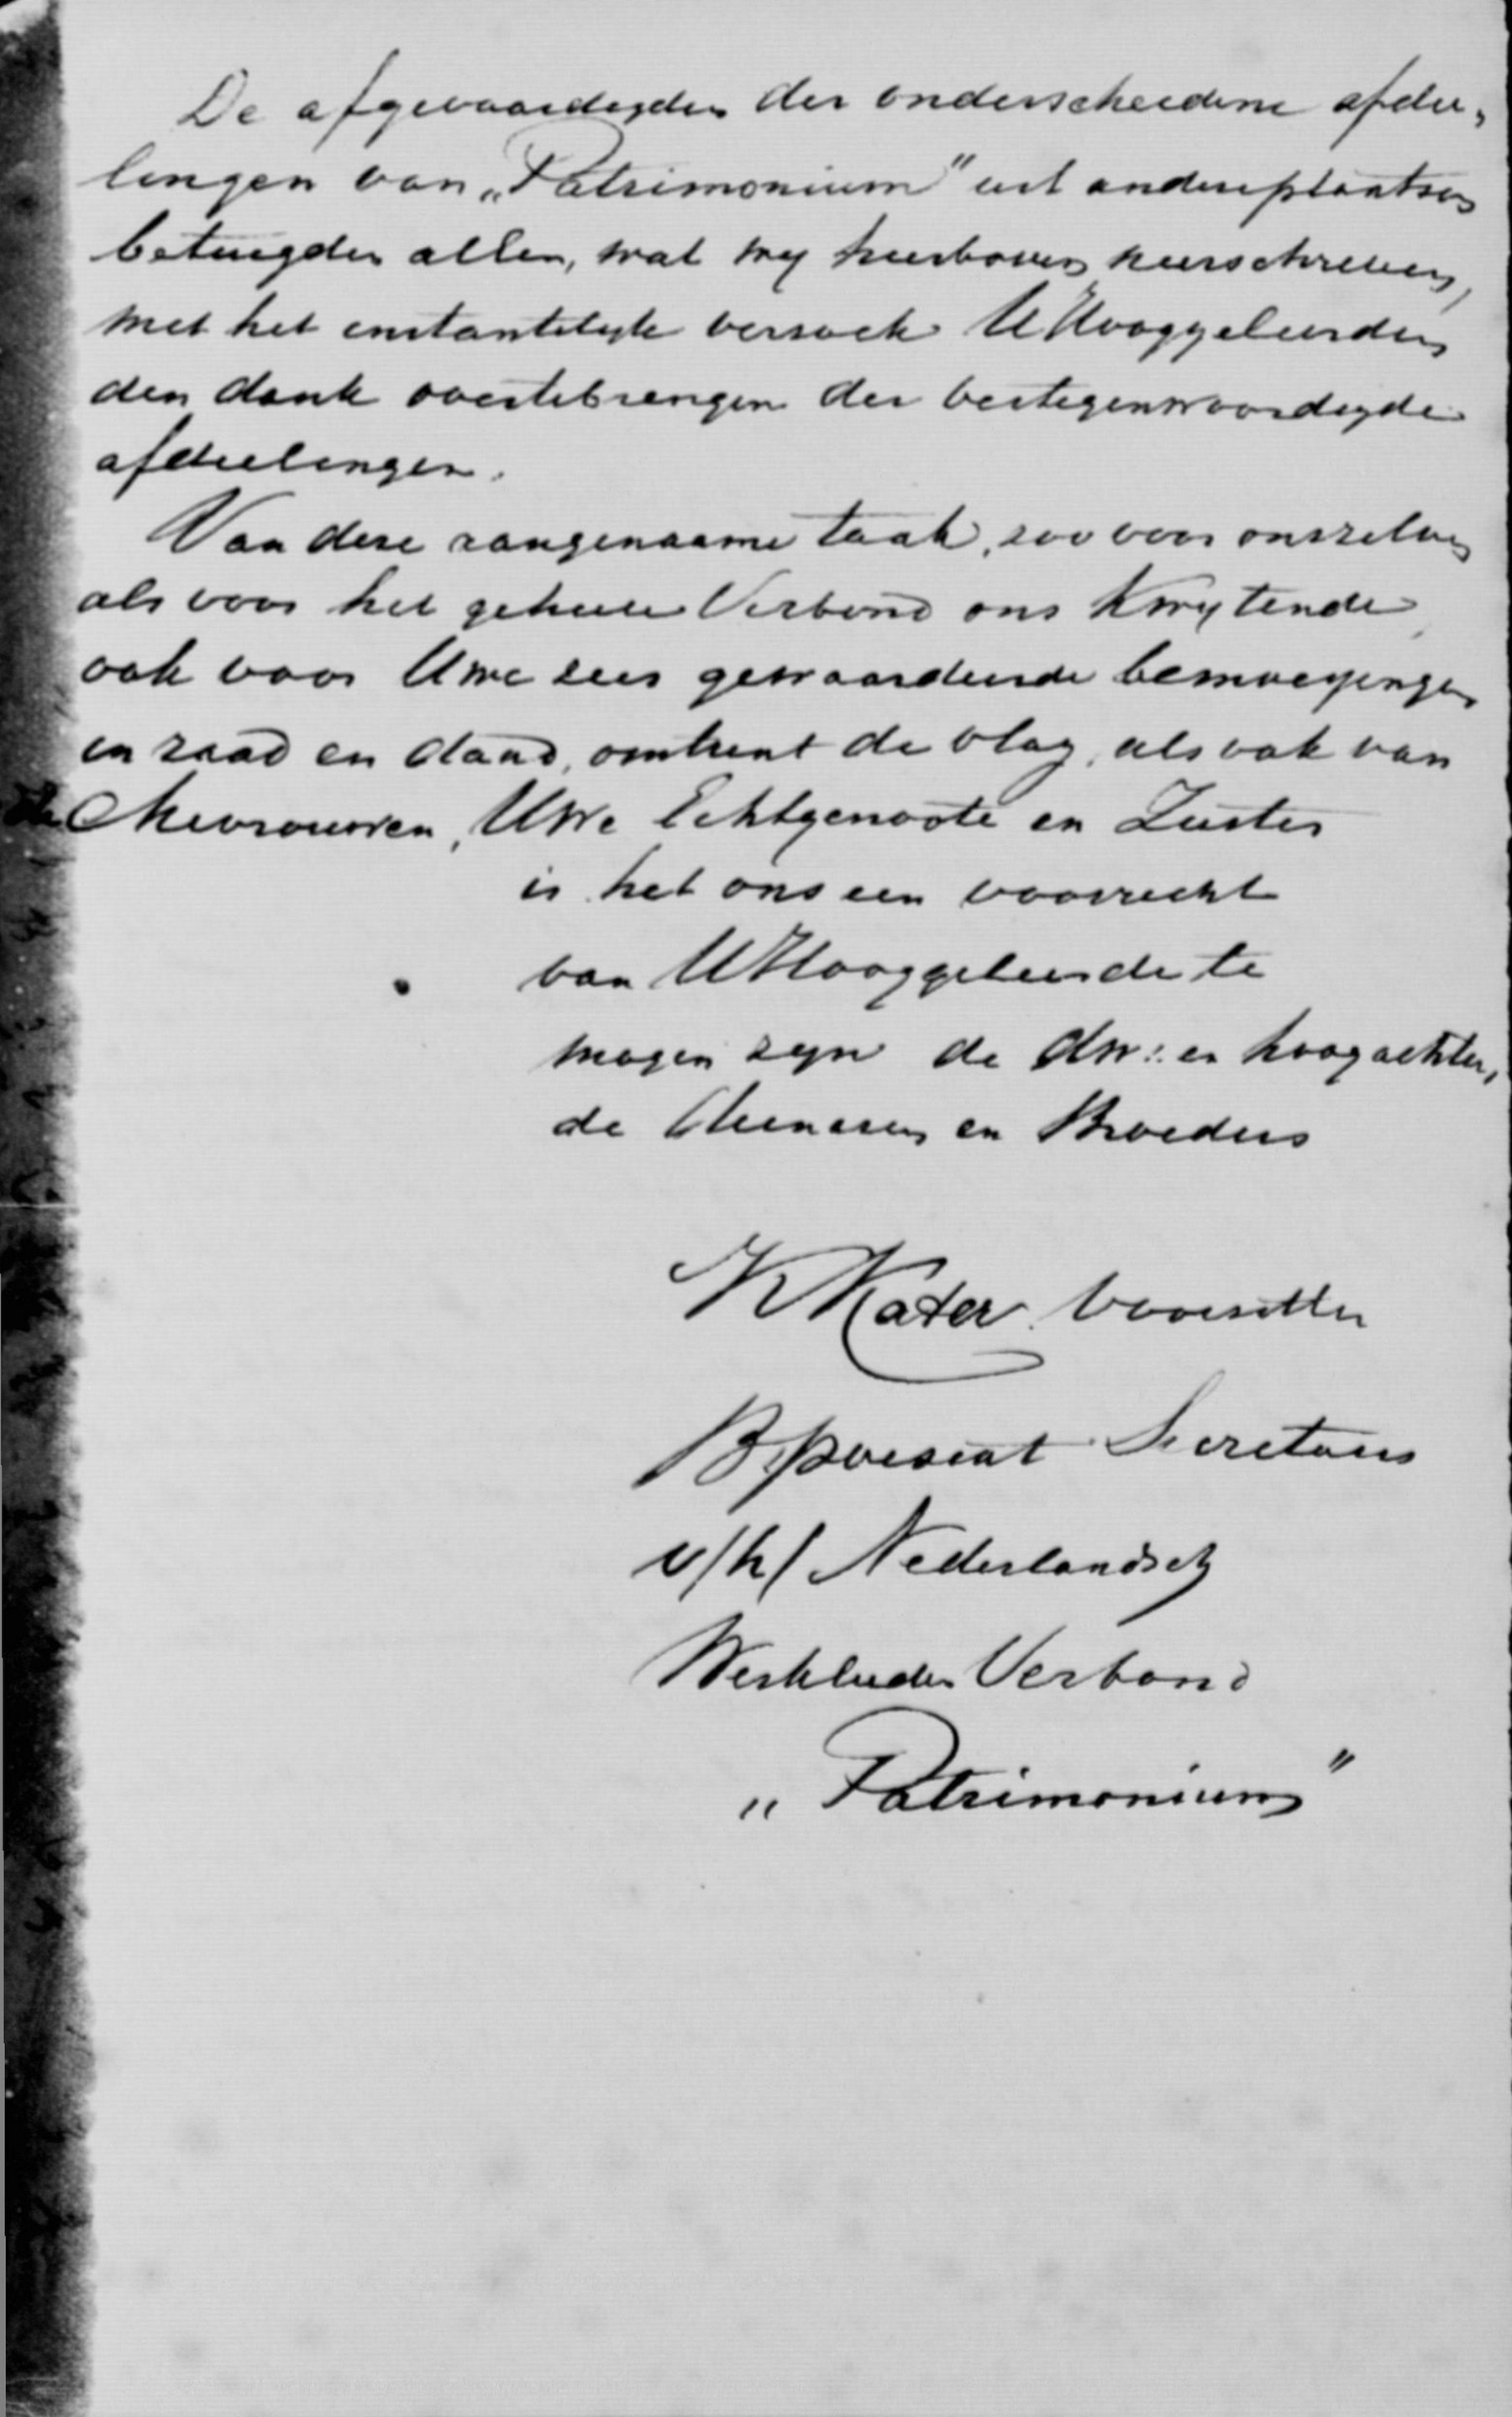 De afgevaardigden der onderscheidene afdee„
lingen van „Patrimonium" uit andere plaatsen
betuigden allen, wat wij hierboven neerschreven,
met het instantelijk verzoek UHooggeleerden
den dank overtebrengen der vertegenwoordigde
afdeelingen.
Van deze aangenaame taak, zoo voor onszelven
als voor het geheele Verbond ons kwijtende,
ook voor Uwe zeer gewaardeerde bemoeijingen
in raad en daad, omtrent de vlag, als ook van
de Mevrouwen, Uwe Echtgenoote en Zuster
is het ons een voorrecht
van UHooggeleerde te
mogen zijn de dw: en hoogachten„
de Dienaren en Broeders
K Kater Voorzitter
B Poesiat Secretaris
v/h/ Nederlandsch
Werklieden Verbond
„Patrimonium"